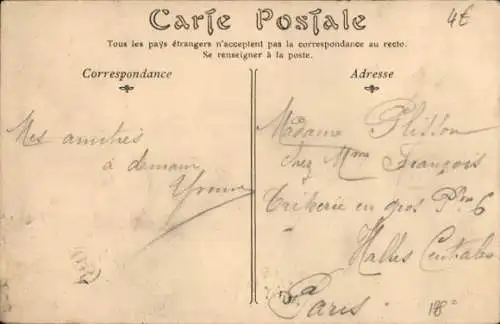 Carte Postale
4€
Tous les pays étrangers n'acceptent pas la correspondance au recto.
Se renseigner à la poste.
Correspondance
Mes amitiés
à demain
Yvonne
Adresse
Madame Plisson
chez Mme François
Triperie en gros Pon 6
Halles Centrales
Paris